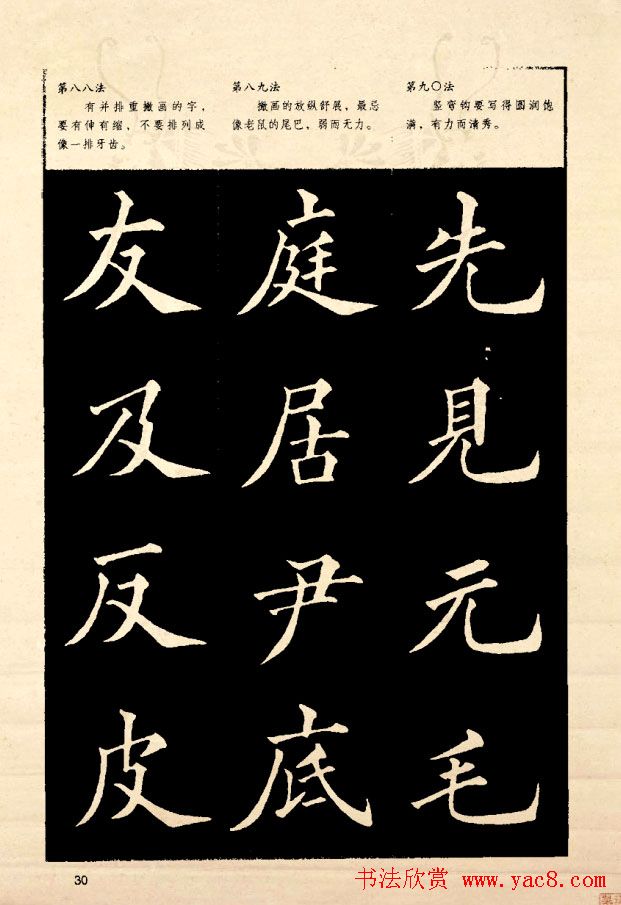 第八八法
有并排重撇画的字，
要有伸有缩，不要排列成
像一排牙齿。
第八九法
撇画的放纵舒展，最忌
像老鼠的尾巴，弱而无力。
第九〇法
竖弯钩要写得圆润饱
满，有力而清秀。
友 庭 先
及 居 見
反 尹 元
皮 底 毛
30
书法欣赏 www.yac8.com